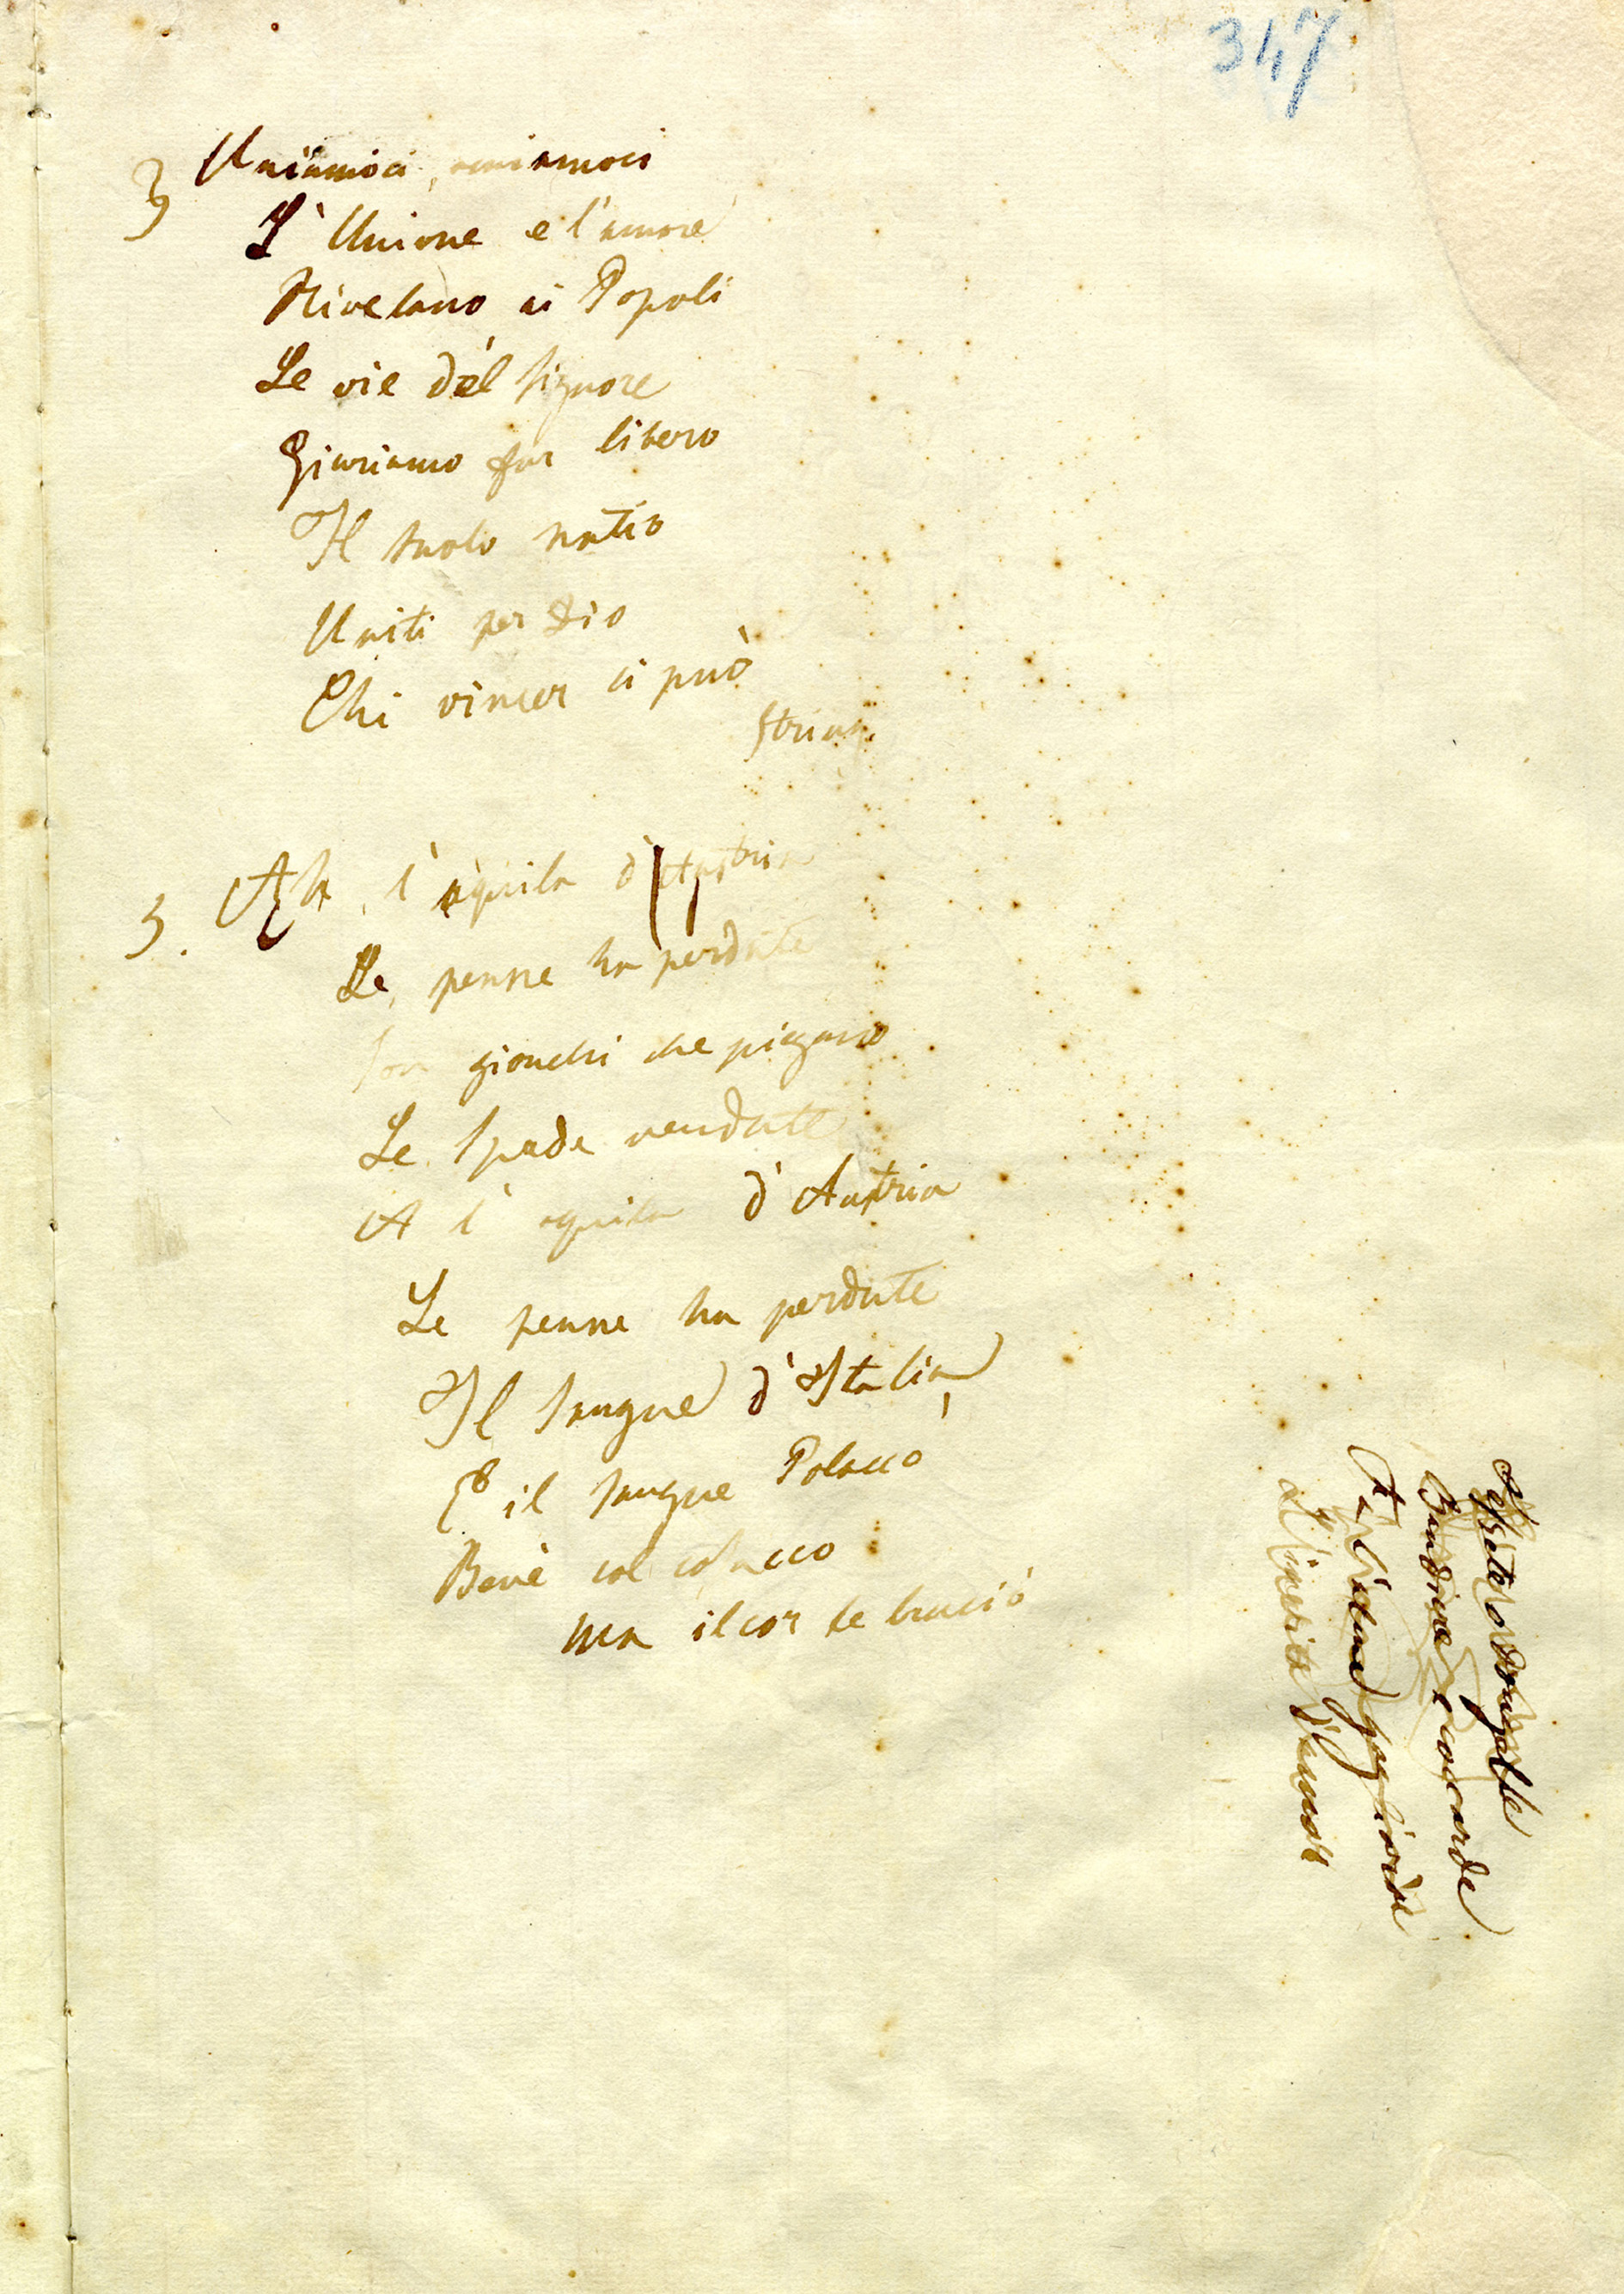 347
3 Uniamoci, amiamoci
L' Unione e l'amore
Rivelano ai Popoli
Le vie del Signore
Giuriamo far libero
Il suolo natio
Uniti per Dio
Chi vincer ci può
String.
5. Ah, l'aquila d'Austria
Le penne ha perdute
Son giunchi che piegano
Le Spade vendute
A l'aquila d'Austria
Le penne ha perdute
Il Sangue d'Italia
E il sangue Polacco
Bevè col cosacco
Ma il cor le bruciò
Bandiere e coccarde